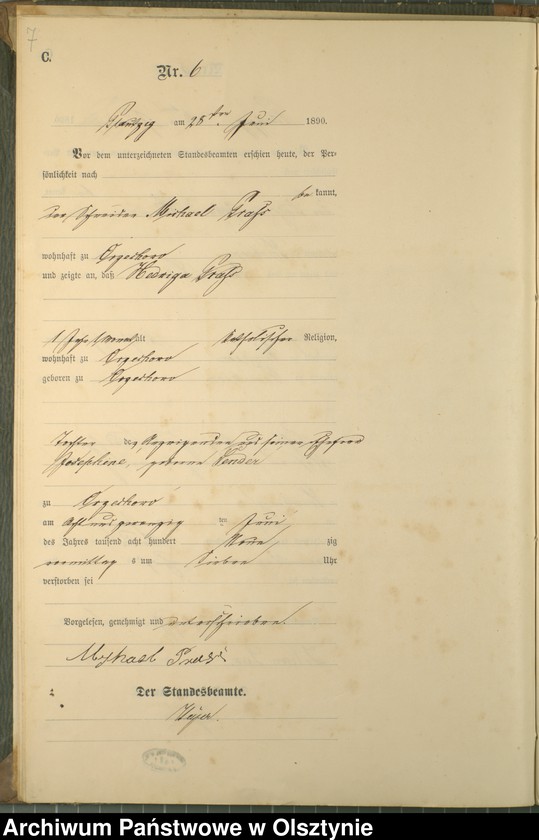 7
C.
Nr. 6
am 28ten Juni 1890.
Vor dem unterzeichneten Standesbeamten erschien heute, der Per-
sönlichkeit nach
be kannt,
der Schneider Michael
wohnhaft zu Orzechowo
und zeigte an, daß Hedwiga
1 Jahr alt katholischer Religion,
wohnhaft zu Orzechowo
geboren zu Orzechowo
Tochter des Anzeigenden und seiner Ehefrau
Josephine, geborene
zu Orzechowo
am acht und zwanzig ten Juni
des Jahres tausend acht hundert Neun zig
vormittag s um sieben Uhr
verstorben sei
Vorgelesen, genehmigt und unterschrieben
Der Standesbeamte.
Archiwum Państwowe w Olsztynie